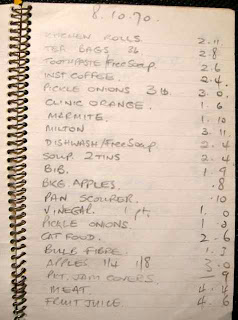 8.10.70.
KITCHEN ROLLS 2.11
TEA BAGS 2.8
TOOTHPASTE/FREE Soap. 2.6
INST COFFEE. 2.4.
PICKLE ONIONS 3 lb. 3.0.
CLINIC ORANGE. 1.6
MARMITE. 1.10
MILTON 3.11
DISHWASH/FREE Soap 2.4
SOUP 2 TINS 2.4
BIB. 1.9
BKG APPLES. .8
PAN SCOURER. .10
VINEGAR. 1 pt. 1.0
PICKLE ONIONS. 1.0
CAT FOOD. 2.6
BULB FIBRE. 1.3
APPLES 1/4 1/8 3.0
PKT. JAM COVERS. .9
MEAT. 4.4
FRUIT JUICE. 4.6